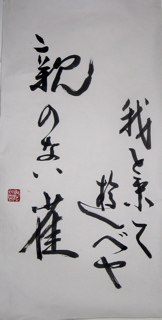 我と来て
遊べや
親のない雀